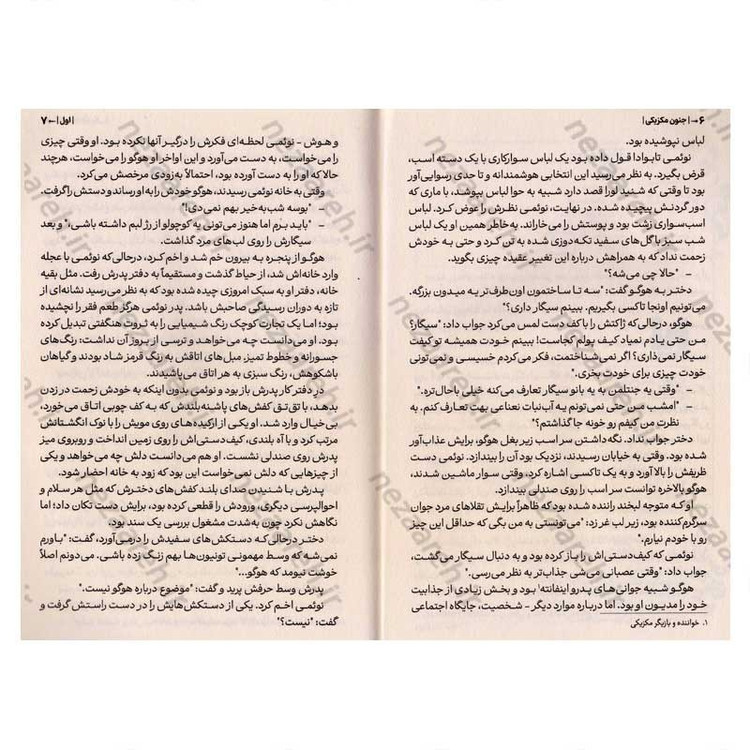 ۶ → | جنون مکزیکی |
لباس نپوشیده بود.
نوئمی تابوادا قول داده بود یک لباس سوارکاری با یک دسته اسب،
قرض بگیرد. به نظر می‌رسید این انتخابی هوشمندانه و تا حدی رسوایی‌آور
بود تا وقتی که شنید لورا قصد دارد شبیه به حوا لباس بپوشد، با ماری که
دور گردنش پیچیده شده. در نهایت، نوئمی نظرش را عوض کرد. لباس
اسب‌سواری زشت بود و پوستش را می‌خاراند. به‌خاطر همین او یک لباس
شب سبز با گل‌های سفید تکه‌دوزی شده به تن کرد و حتی به خودش
زحمت نداد که به همراهش درباره این تغییر عقیده چیزی بگوید.
- "حالا چی می‌شه؟"
دختر به هوگو گفت: "سه تا ساختمون اون‌طرف‌تر یه میدون بزرگه.
می‌تونیم اونجا تاکسی بگیریم. ببینم سیگار داری؟"
هوگو، درحالی‌که ژاکتش را با کف دست لمس می‌کرد جواب داد: "سیگار؟
من حتی یادم نمیاد کیف پولم کجاست! ببینم خودت همیشه تو کیفت
سیگار نمی‌ذاری؟ اگر نمی‌شناختمت، فکر می‌کردم خسیسی و نمی‌تونی
خودت چیزی برای خودت بخری."
- "وقتی یه جنتلمن به یه بانو سیگار تعارف می‌کنه خیلی باحال‌تره."
- "امشب من حتی نمی‌تونم یه آب‌نبات نعناعی بهت تعارف کنم. به
نظرت من کیفم رو خونه جا گذاشتم؟"
دختر جواب نداد. نگه‌داشتن سر اسب زیر بغل هوگو، برایش عذاب‌آور
شده بود. وقتی به خیابان رسیدند، نزدیک بود آن را بیندازد. نوئمی دست
ظریفش را بالا آورد و به یک تاکسی اشاره کرد. وقتی سوار ماشین شدند،
هوگو بالاخره توانست سر اسب را روی صندلی بیندازد.
او که متوجه لبخند راننده شده بود که ظاهراً برایش تقلاهای مرد جوان
سرگرم‌کننده بود، زیر لب غر زد: "می‌تونستی به من بگی که حداقل این چیز
رو با خودم نیارم."
نوئمی که کیف‌دستی‌اش را باز کرده بود و به دنبال سیگار می‌گشت،
جواب داد: "وقتی عصبانی می‌شی جذاب‌تر به نظر می‌رسی."
هوگو شبیه جوانی‌های پدرو اینفانته¹ بود و بخش زیادی از جذابیت
خود را مدیون او بود. اما درباره موارد دیگر - شخصیت، جایگاه اجتماعی
۱. خواننده و بازیگر مکزیکی
| اول | ← ۷
و هوش - نوئمی لحظه‌ای فکرش را درگیر آنها نکرده بود. او وقتی چیزی
را می‌خواست، به دست می‌آورد و این اواخر او هوگو را می‌خواست، هرچند
حالا که او را به دست آورده بود، احتمالاً به‌زودی مرخصش می‌کرد.
وقتی به خانه نوئمی رسیدند، هوگو خودش را به او رساند و دستش را گرفت.
- "بوسه شب‌به‌خیر بهم نمی‌دی!"
- "باید برم اما هنوز می‌تونی یه کوچولو از رژ لبم داشته باشی،" و بعد
سیگارش را روی لب‌های مرد گذاشت.
هوگو از پنجره به بیرون خم شد و اخم کرد، درحالی‌که نوئمی با عجله
وارد خانه‌اش شد، از حیاط گذشت و مستقیماً به دفتر پدرش رفت. مثل بقیه
خانه، دفتر او به سبک امروزی چیده شده بود که به نظر می‌رسید نشانه‌ای از
تازه به دوران رسیدگی صاحبش باشد. پدر نوئمی هرگز طعم فقر را نچشیده
بود؛ اما یک تجارت کوچک رنگ شیمیایی را به ثروت هنگفتی تبدیل کرده
بود. او می‌دانست چه می‌خواهد و ترسی از بروز آن نداشت: رنگ‌های
جسورانه و خطوط تمیز. مبل‌های اتاقش به رنگ قرمز شاد بودند و گیاهان
باشکوهش، رنگ سبزی به هر اتاق می‌پاشیدند.
در دفتر کار پدرش باز بود و نوئمی بدون اینکه به خودش زحمت در زدن
بدهد، با تق‌تق کفش‌های پاشنه‌بلندش که به کف چوبی اتاق می‌خورد،
بی‌خیال وارد شد. او یکی از ارکیده‌های روی مویش را با نوک انگشتانش
مرتب کرد و با آه بلندی، کیف‌دستی‌اش را روی زمین انداخت و روبروی میز
پدرش روی صندلی نشست. او هم می‌دانست دلش چه می‌خواهد و یکی
از چیزهایی که دلش نمی‌خواست این بود که زود به خانه احضار شود.
پدرش با شنیدن صدای بلند کفش‌های دخترش که مثل هر سلام و
احوالپرسی دیگری، ورودش را قطعی کرده بود، برایش دست تکان داد؛ اما
نگاهش نکرد چون به‌شدت مشغول بررسی یک سند بود.
دختر درحالی‌که دستکش‌های سفیدش را درمی‌آورد، گفت: "باورم
نمی‌شه که وسط مهمونی تونیون‌ها بهم زنگ زده باشی. می‌دونم اصلاً
خوشت نیومد که هوگو..."
پدرش وسط حرفش پرید و گفت: "موضوع درباره هوگو نیست."
نوئمی اخم کرد. یکی از دستکش‌هایش را در دست راستش گرفت و
گفت: "نیست؟"
nezaareh.ir